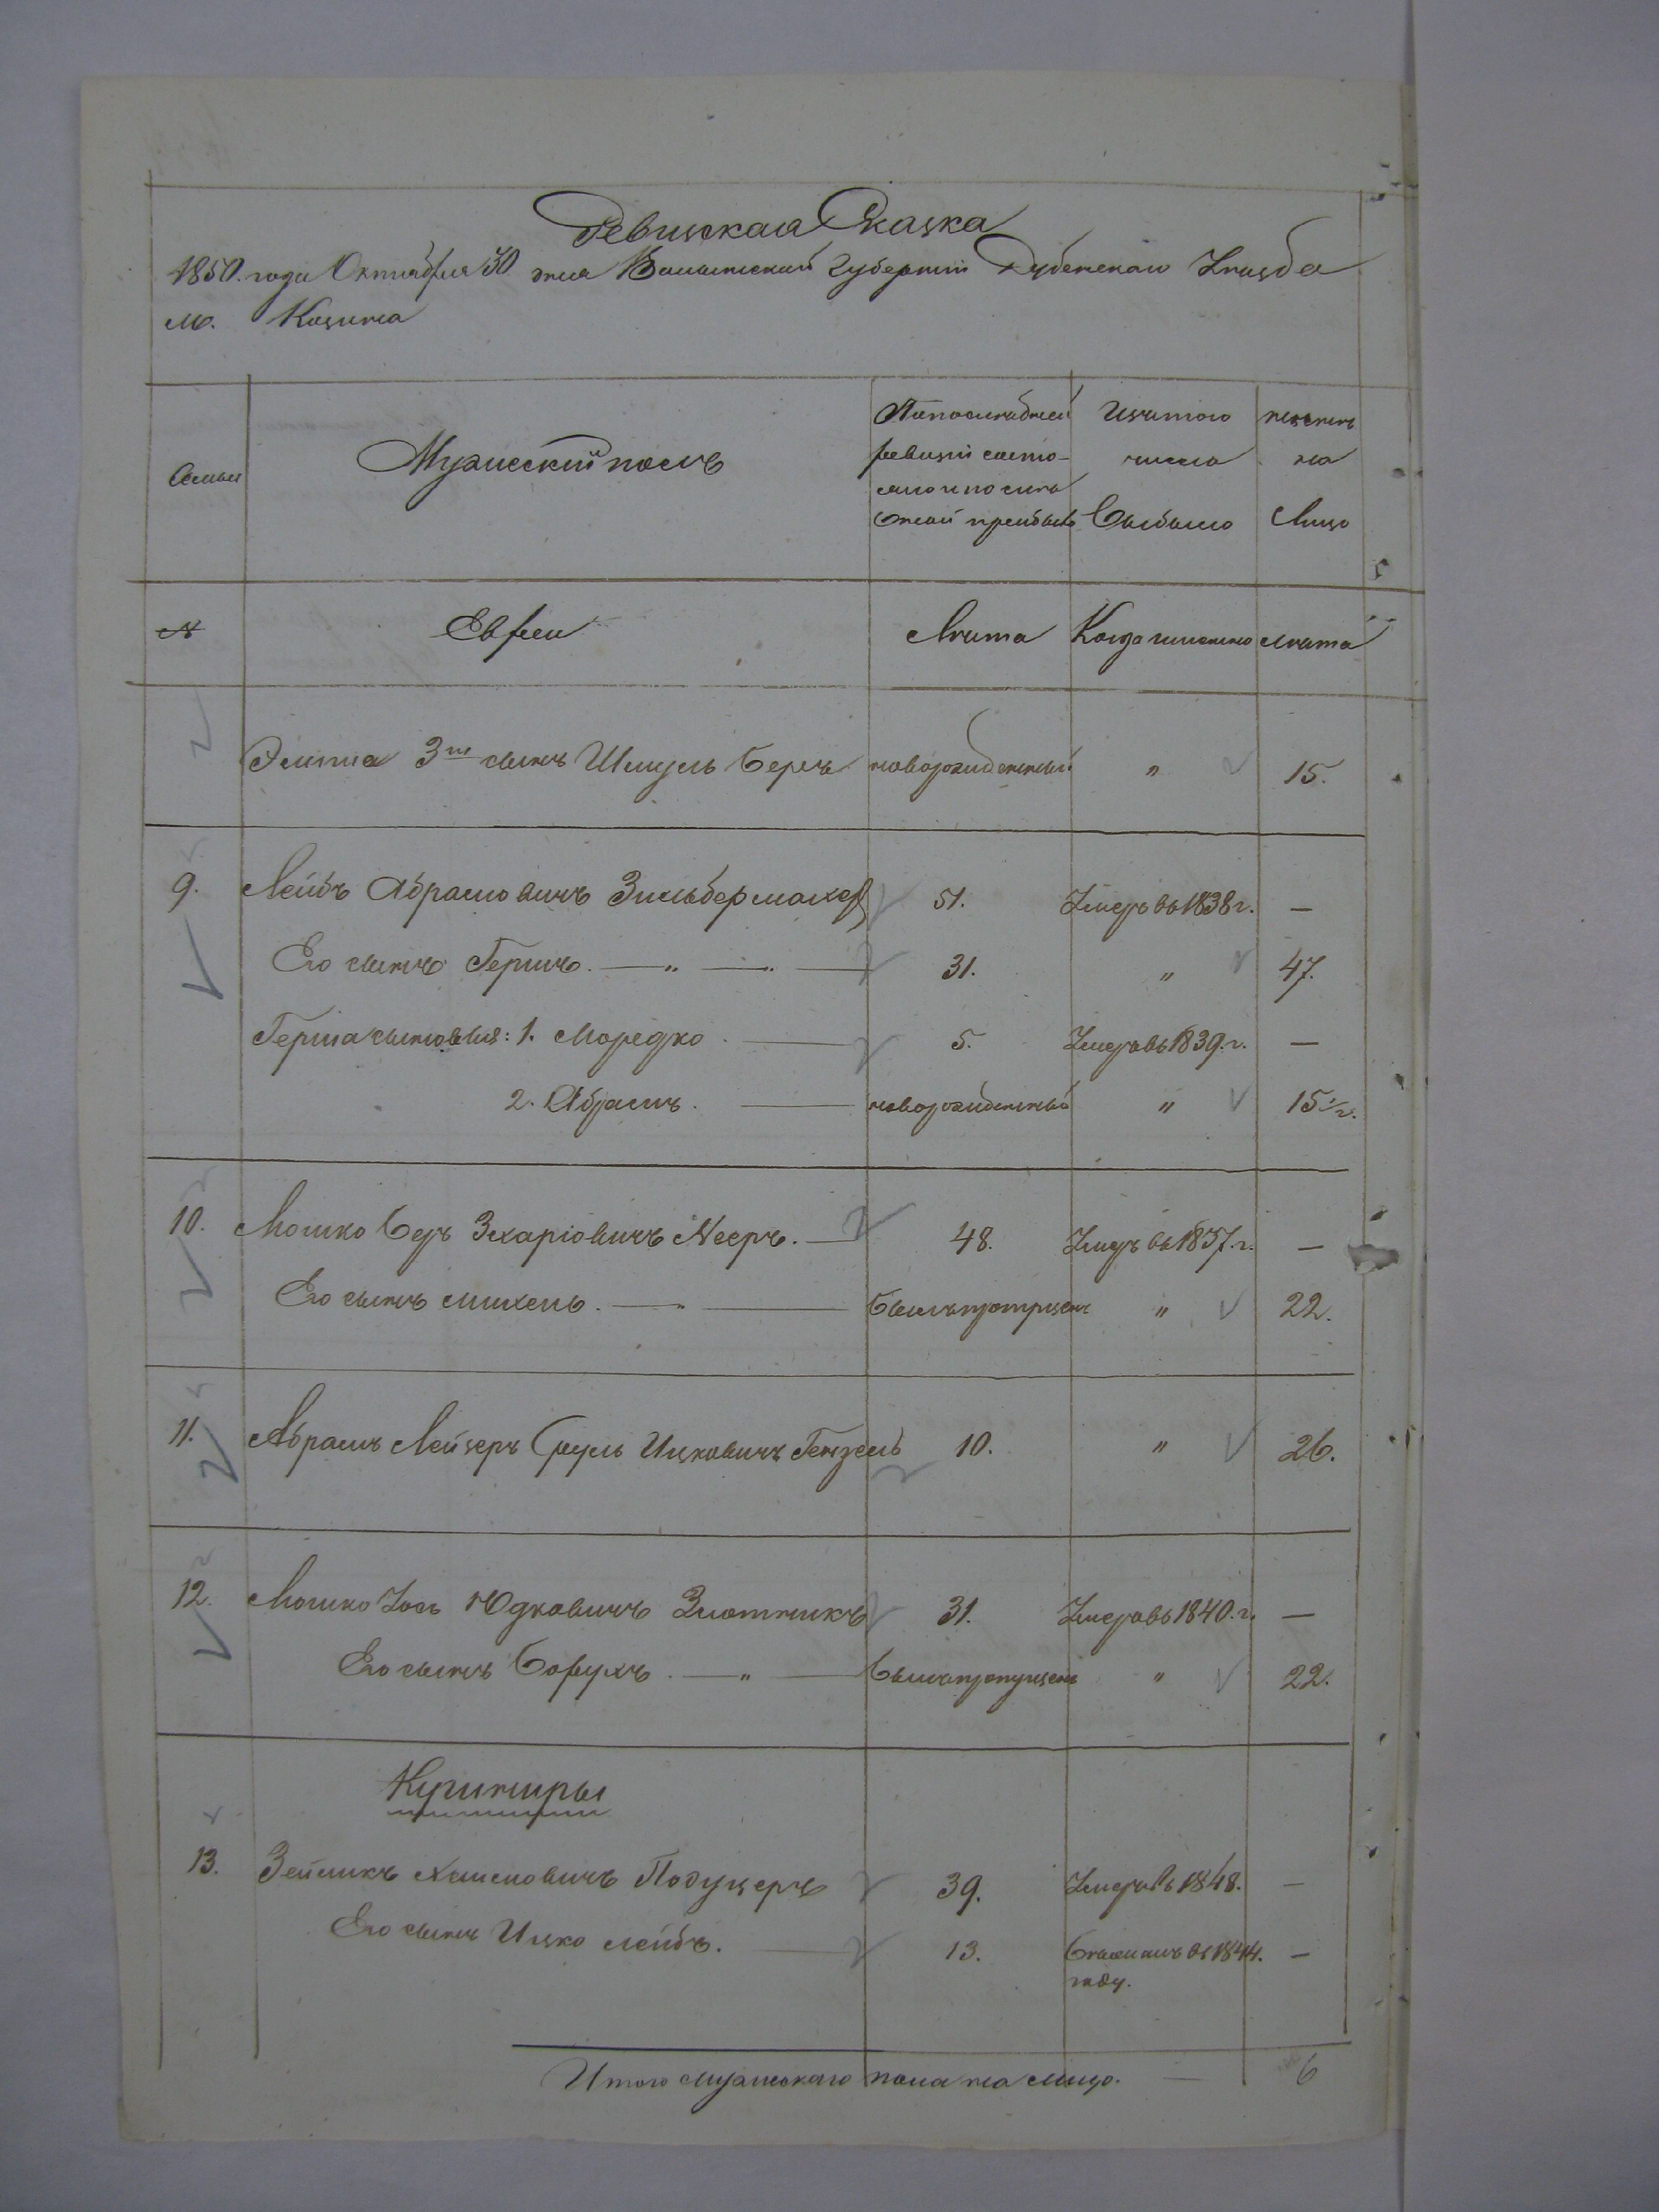 Ревижская Сказка
1850. года Октября 30 дня Волынской Губерніи Дубенскаго Уѣзда
М. Козина
Семьи
Мужескій полъ
По последней ревизіи состояло и после оной прибыло
Изъ того числа выбыло
ныне на лицо
№
Евреи
Лѣта
Когда именно
Лѣта
3й сынъ Шмуль Беръ новорожденный " 15.
9. Лейбъ Абрамовичъ Зильбермахер 51. Умеръ въ 1838 г. —
Его сынъ Гершъ. — " — " — 31. " 47.
Герша сыновья: 1. Мордко. — 5. Умеръ въ 1839. г. —
2. Абрамъ. — новорожденный " 15 1/2.
10. Мошко Беръ Зхаріовичъ — 48. Умеръ въ 1837. г. —
Его сынъ Михель. — " — былъ пропущенъ " 22.
11. Абрамъ Лейзеръ Сруль Ицковичъ Гензель 10. " 26.
12. Мошко Іось Юдковичъ Злотникъ 31. Умеръ въ 1840. г. —
Его сынъ Борухъ. — " — былъ пропущенъ " 22.
13. Зейликъ Хаимовичъ 39. Умеръ въ 1848. —
Его сынъ Ицко Лейбъ. — 13. Бѣжалъ въ 1844. —
году.
Итого мужескаго пола на лицо. — 6